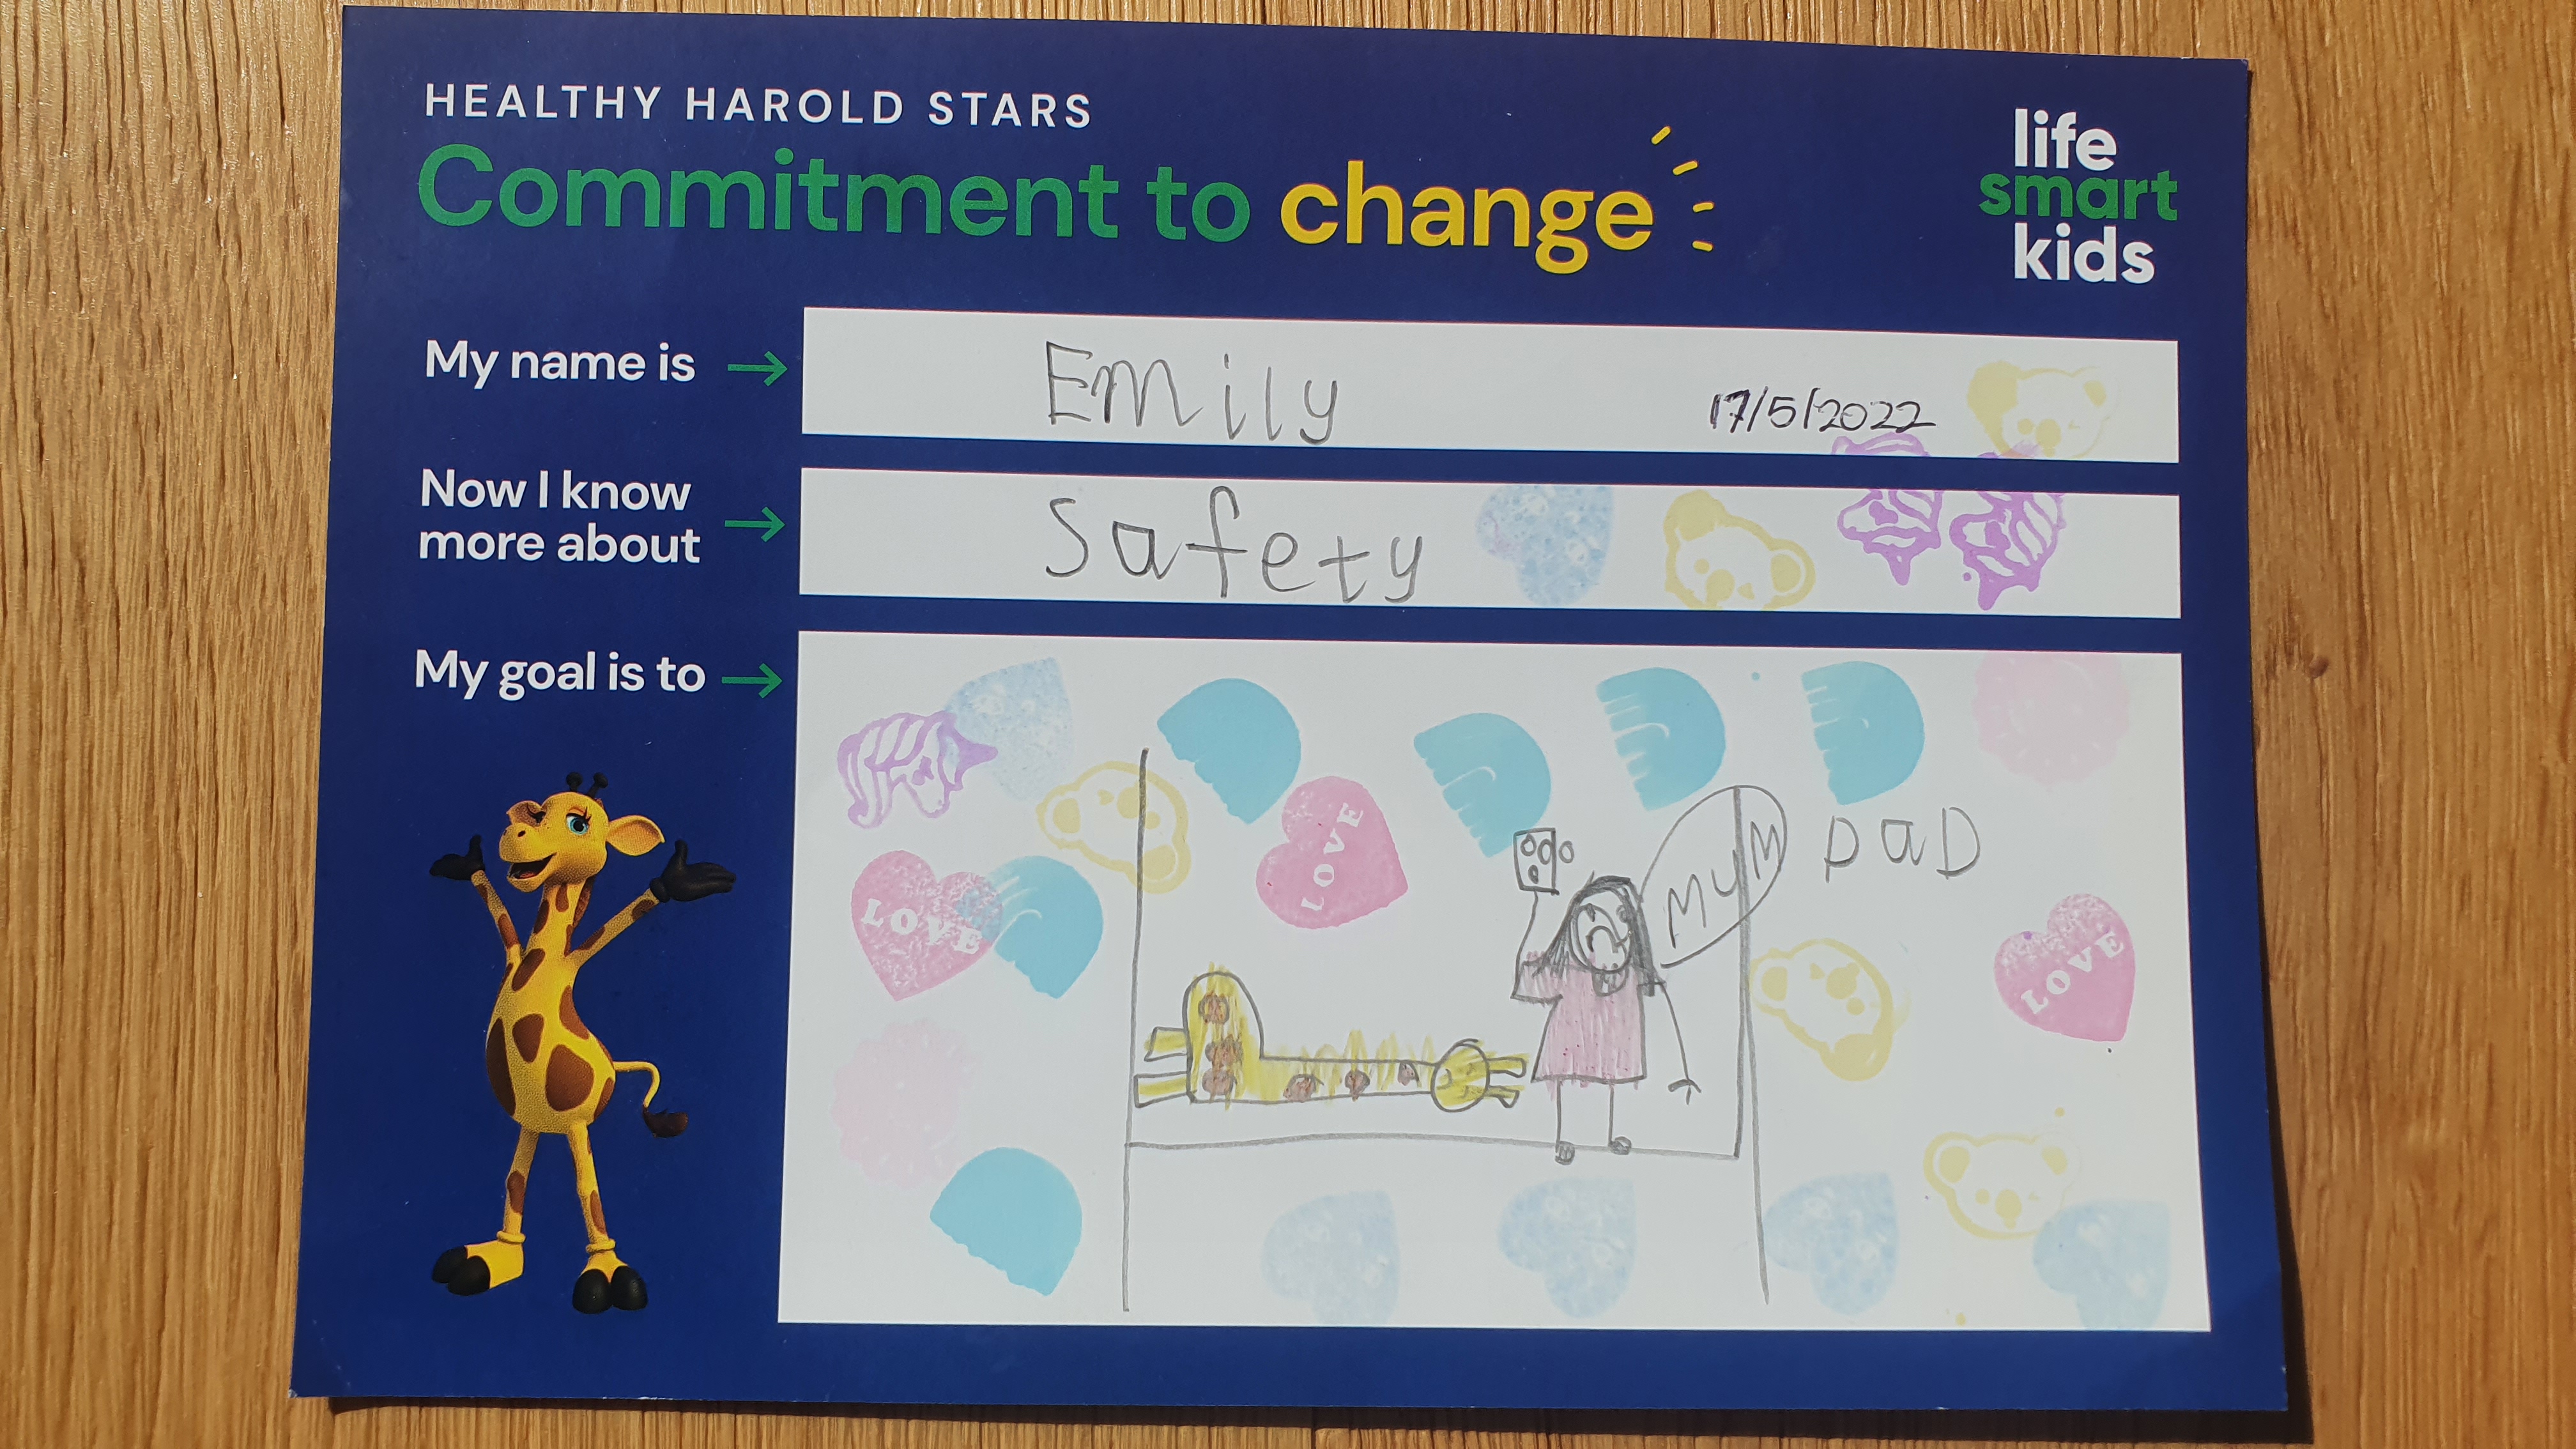 HEALTHY HAROLD STARS
Commitment to change
life
smart
kids
My name is
Emily
17/5/2022
Now I know
more about
Safety
My goal is to
LOVE
LOVE
MUM
DaD
LOVE